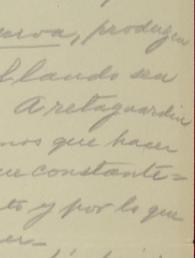 produzca
llando sea
A retaguardia
mos que hacer
ue constante=
y por lo que
er=